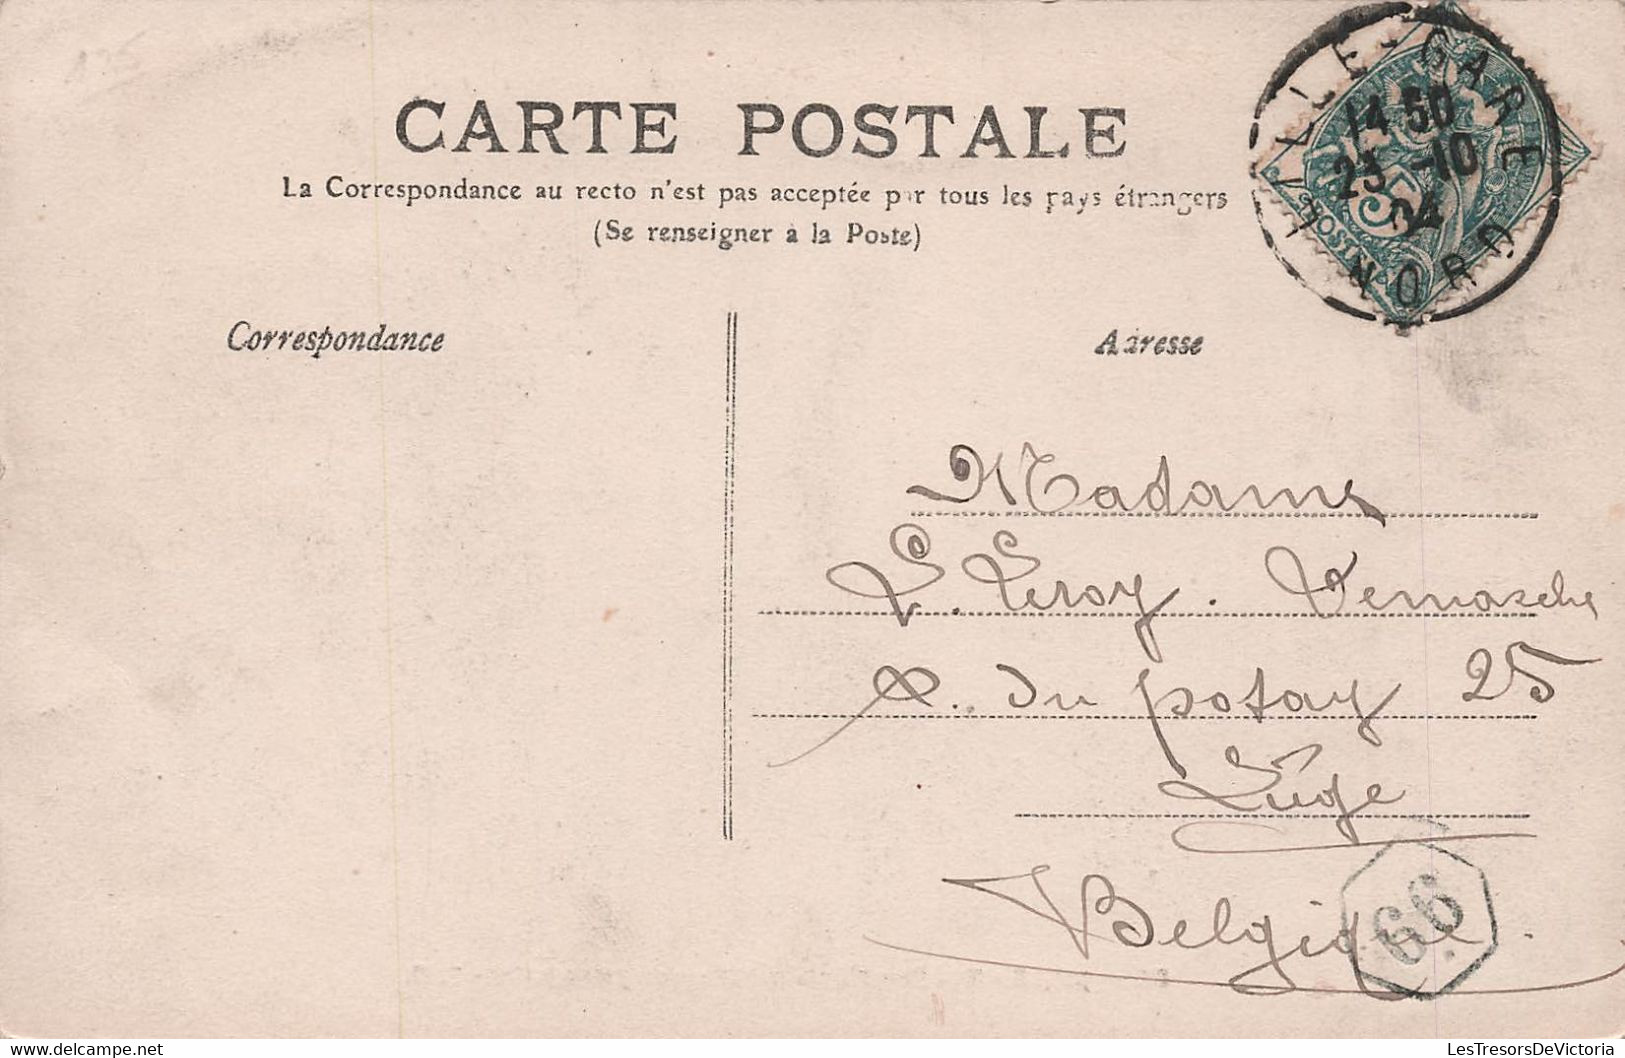 CARTE POSTALE
La Correspondance au recto n'est pas acceptée par tous les pays étrangers
(Se renseigner à la Poste)
LILLE-GARE
14 50
23 -10
04
NORD
5
POSTES
Correspondance
Adresse
Madame
L. Leroy. Demasche
R. du potay 25
Liège
Belgique.
66
delcampe.net
LesTresorsDeVictoria